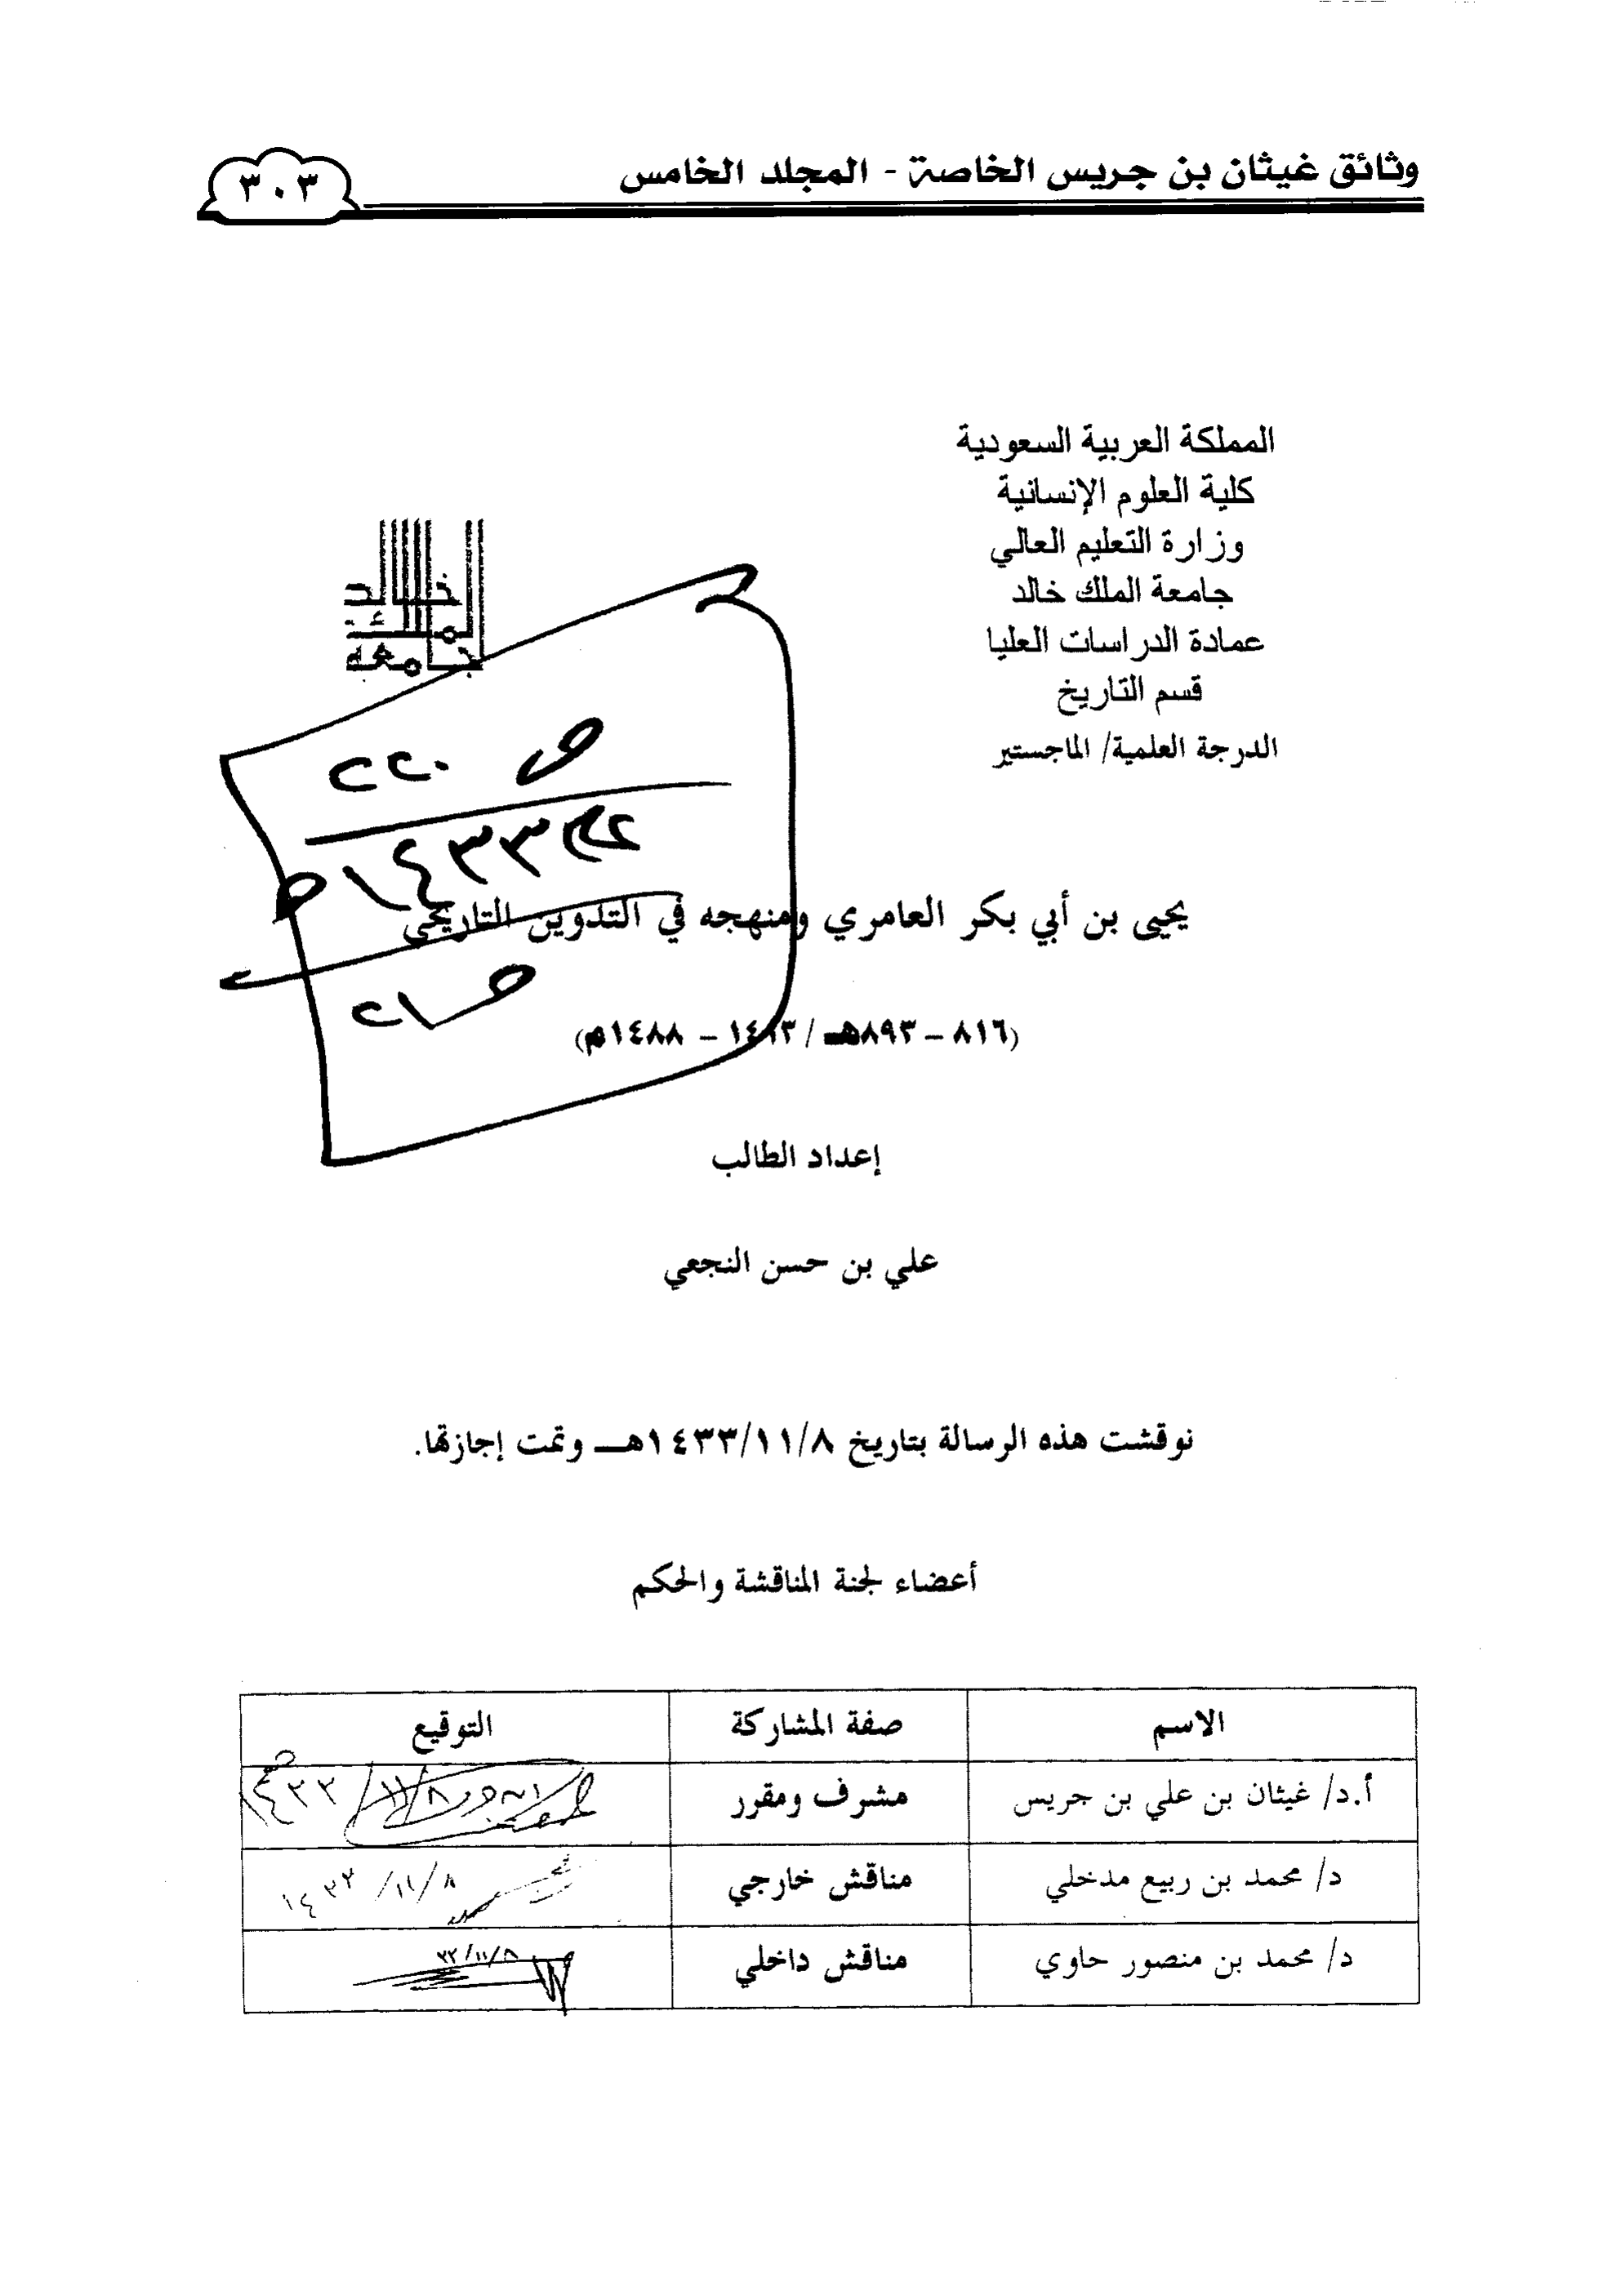 وثائق غيثان بن جريس الخاصة - المجلد الخامس
٣٠٣
المملكة العربية السعودية
كلية العلوم الإنسانية
وزارة التعليم العالي
جامعة الملك خالد
عمادة الدراسات العليا
قسم التاريخ
الدرجة العلمية/ الماجستير
جامعة
الملك
خالد
ص ٢٢٠
١٤٣٣هـ
يحيى بن أبي بكر العامري ومنهجه في التدوين التاريخي
(٨١٦ - ٨٩٣هـ / ١٤١٣ - ١٤٨٨م)
إعداد الطالب
علي بن حسن النجعي
نوقشت هذه الرسالة بتاريخ ١٤٣٣/١١/٨هـ وتمت إجازتها.
أعضاء لجنة المناقشة والحكم
الاسم صفة المشاركة التوقيع
أ.د/ غيثان بن علي بن جريس مشرف ومقرر ١٤٣٣/١١/٨
د/ محمد بن ربيع مدخلي مناقش خارجي ١٤٣٣/١١/٨
د/ محمد بن منصور حاوي مناقش داخلي ٣٣/١١/٨